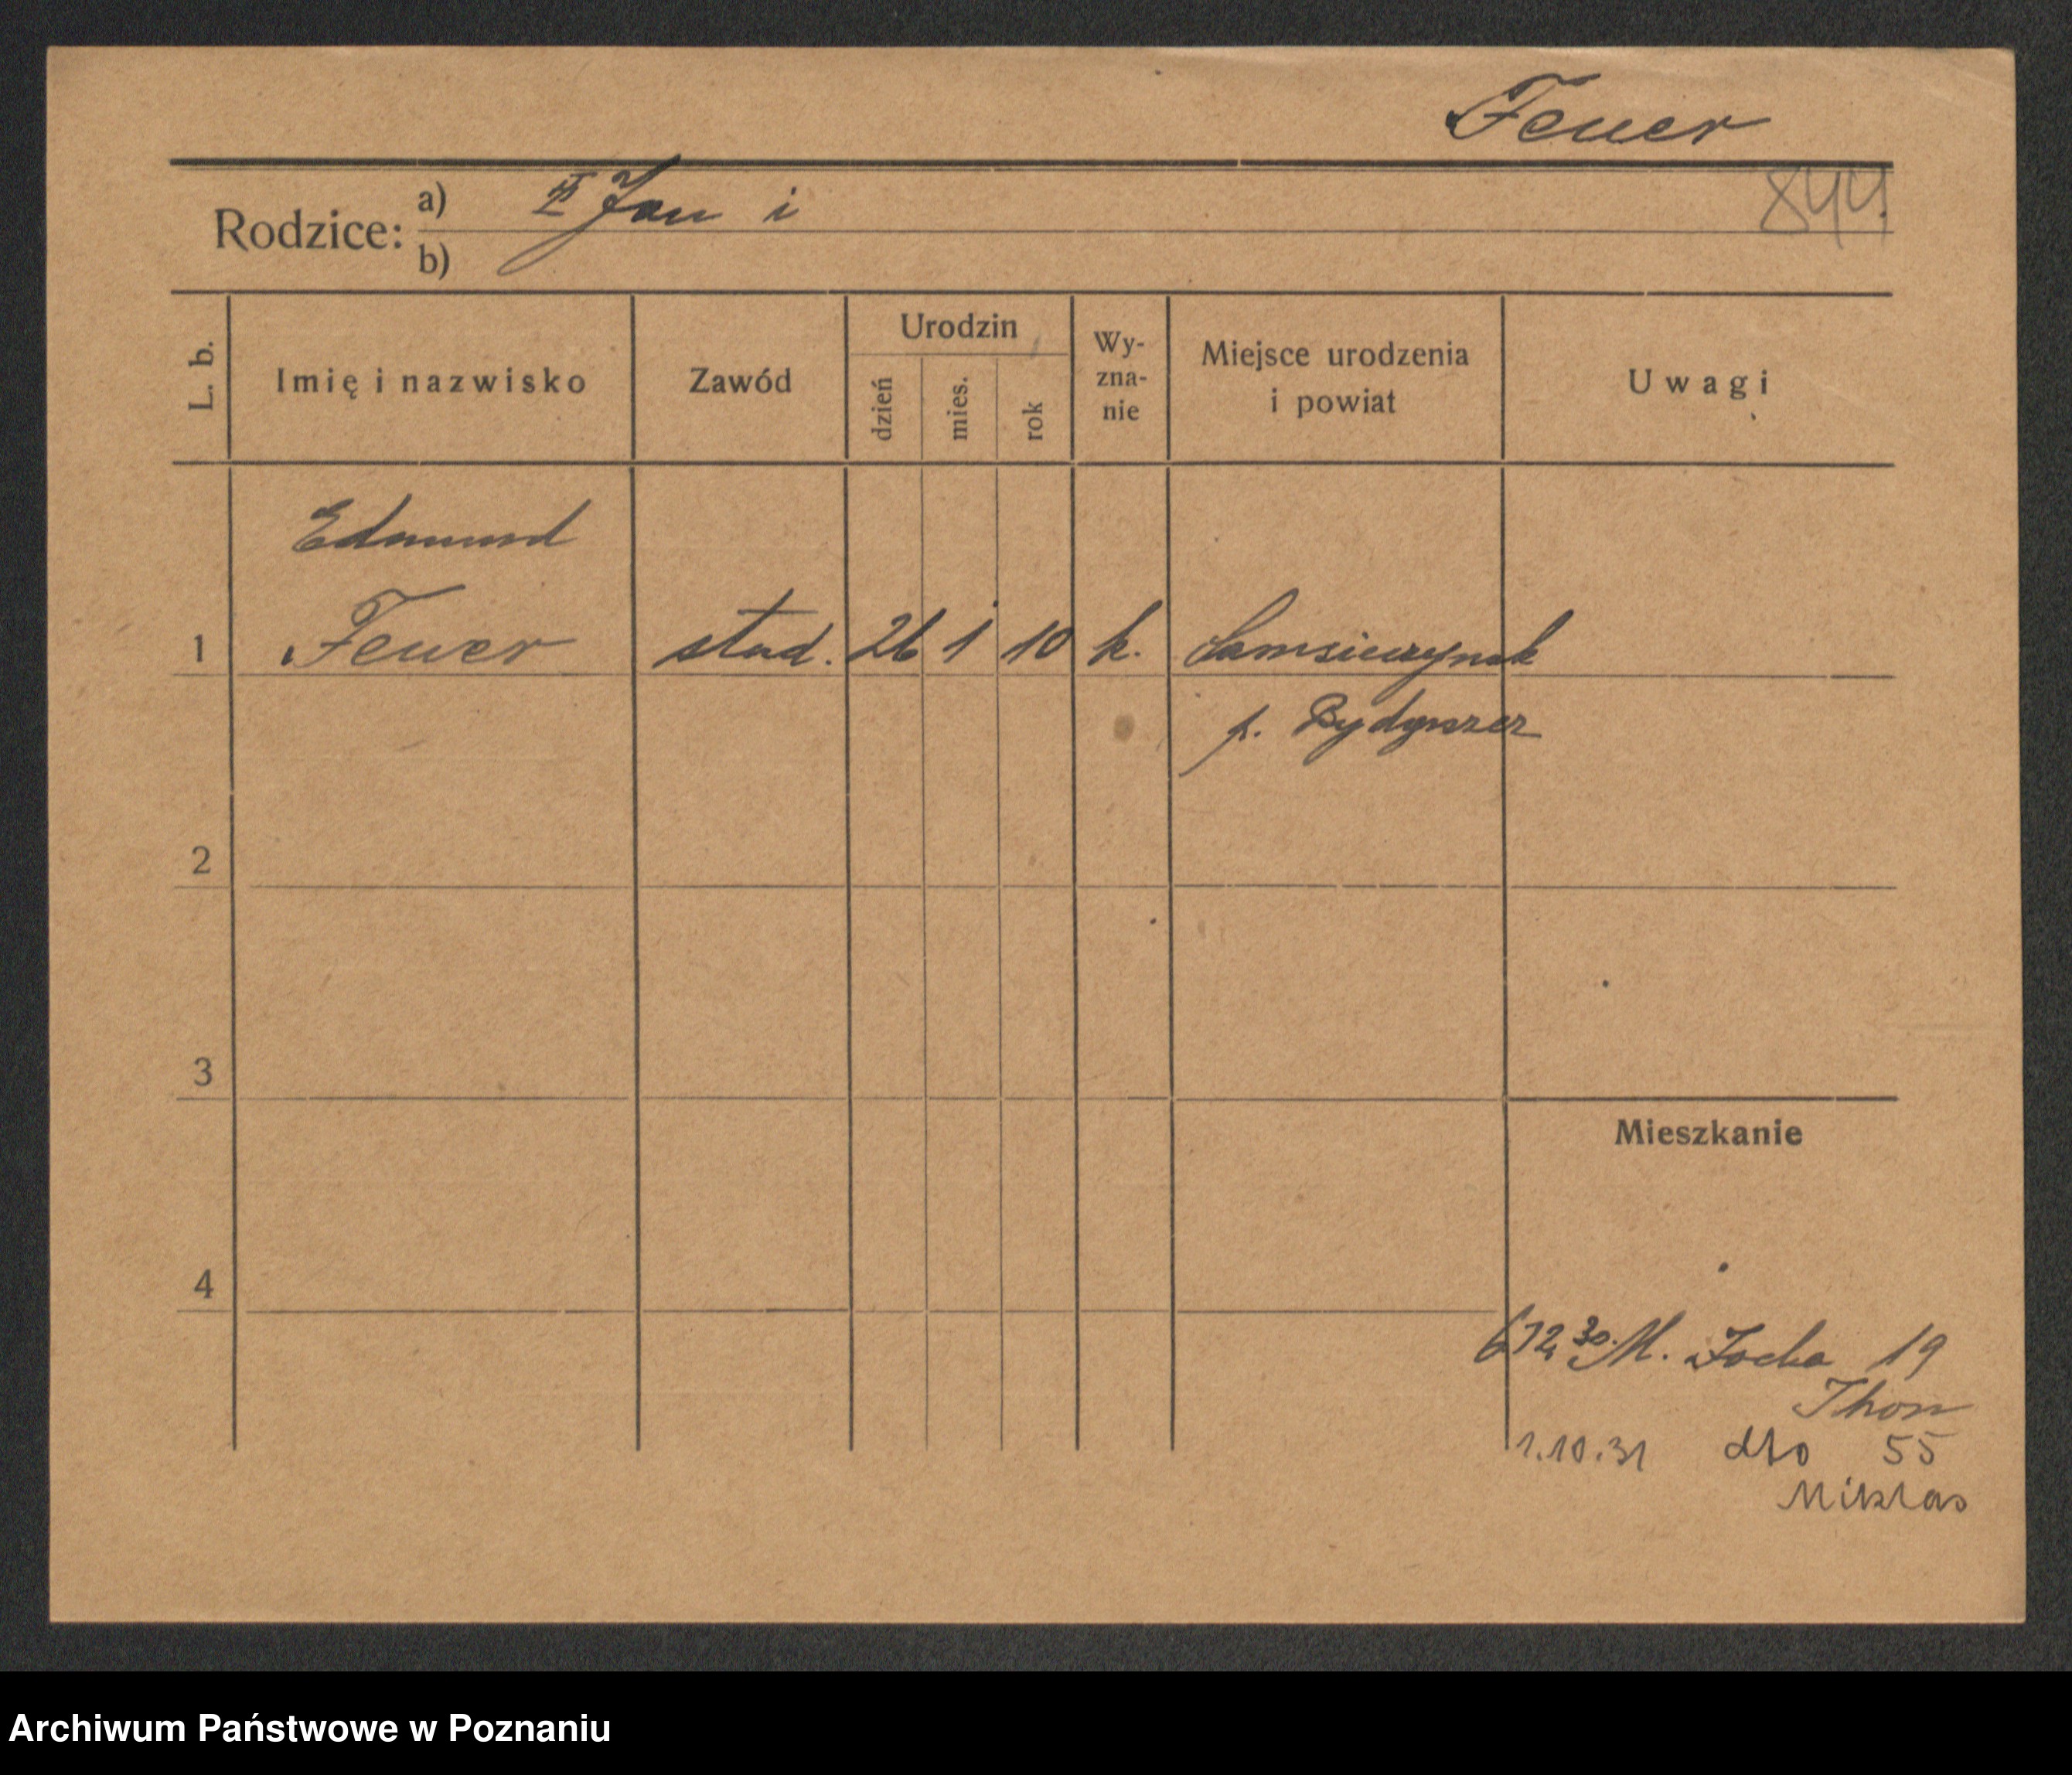 Feuer
844
Rodzice: a) Jan i
b)
L. b.
Imię i nazwisko
Zawód
Urodzin
dzień
mies.
rok
Wy-
zna-
nie
Miejsce urodzenia
i powiat
Uwagi
Edmund
1 Feuer stud. 26 1 10 k. Samsieczynek
p. Bydgoszcz
2
3
Mieszkanie
4
M. Focha 19
Thom
1.10.31 dto 55
Miklas
Archiwum Państwowe w Poznaniu